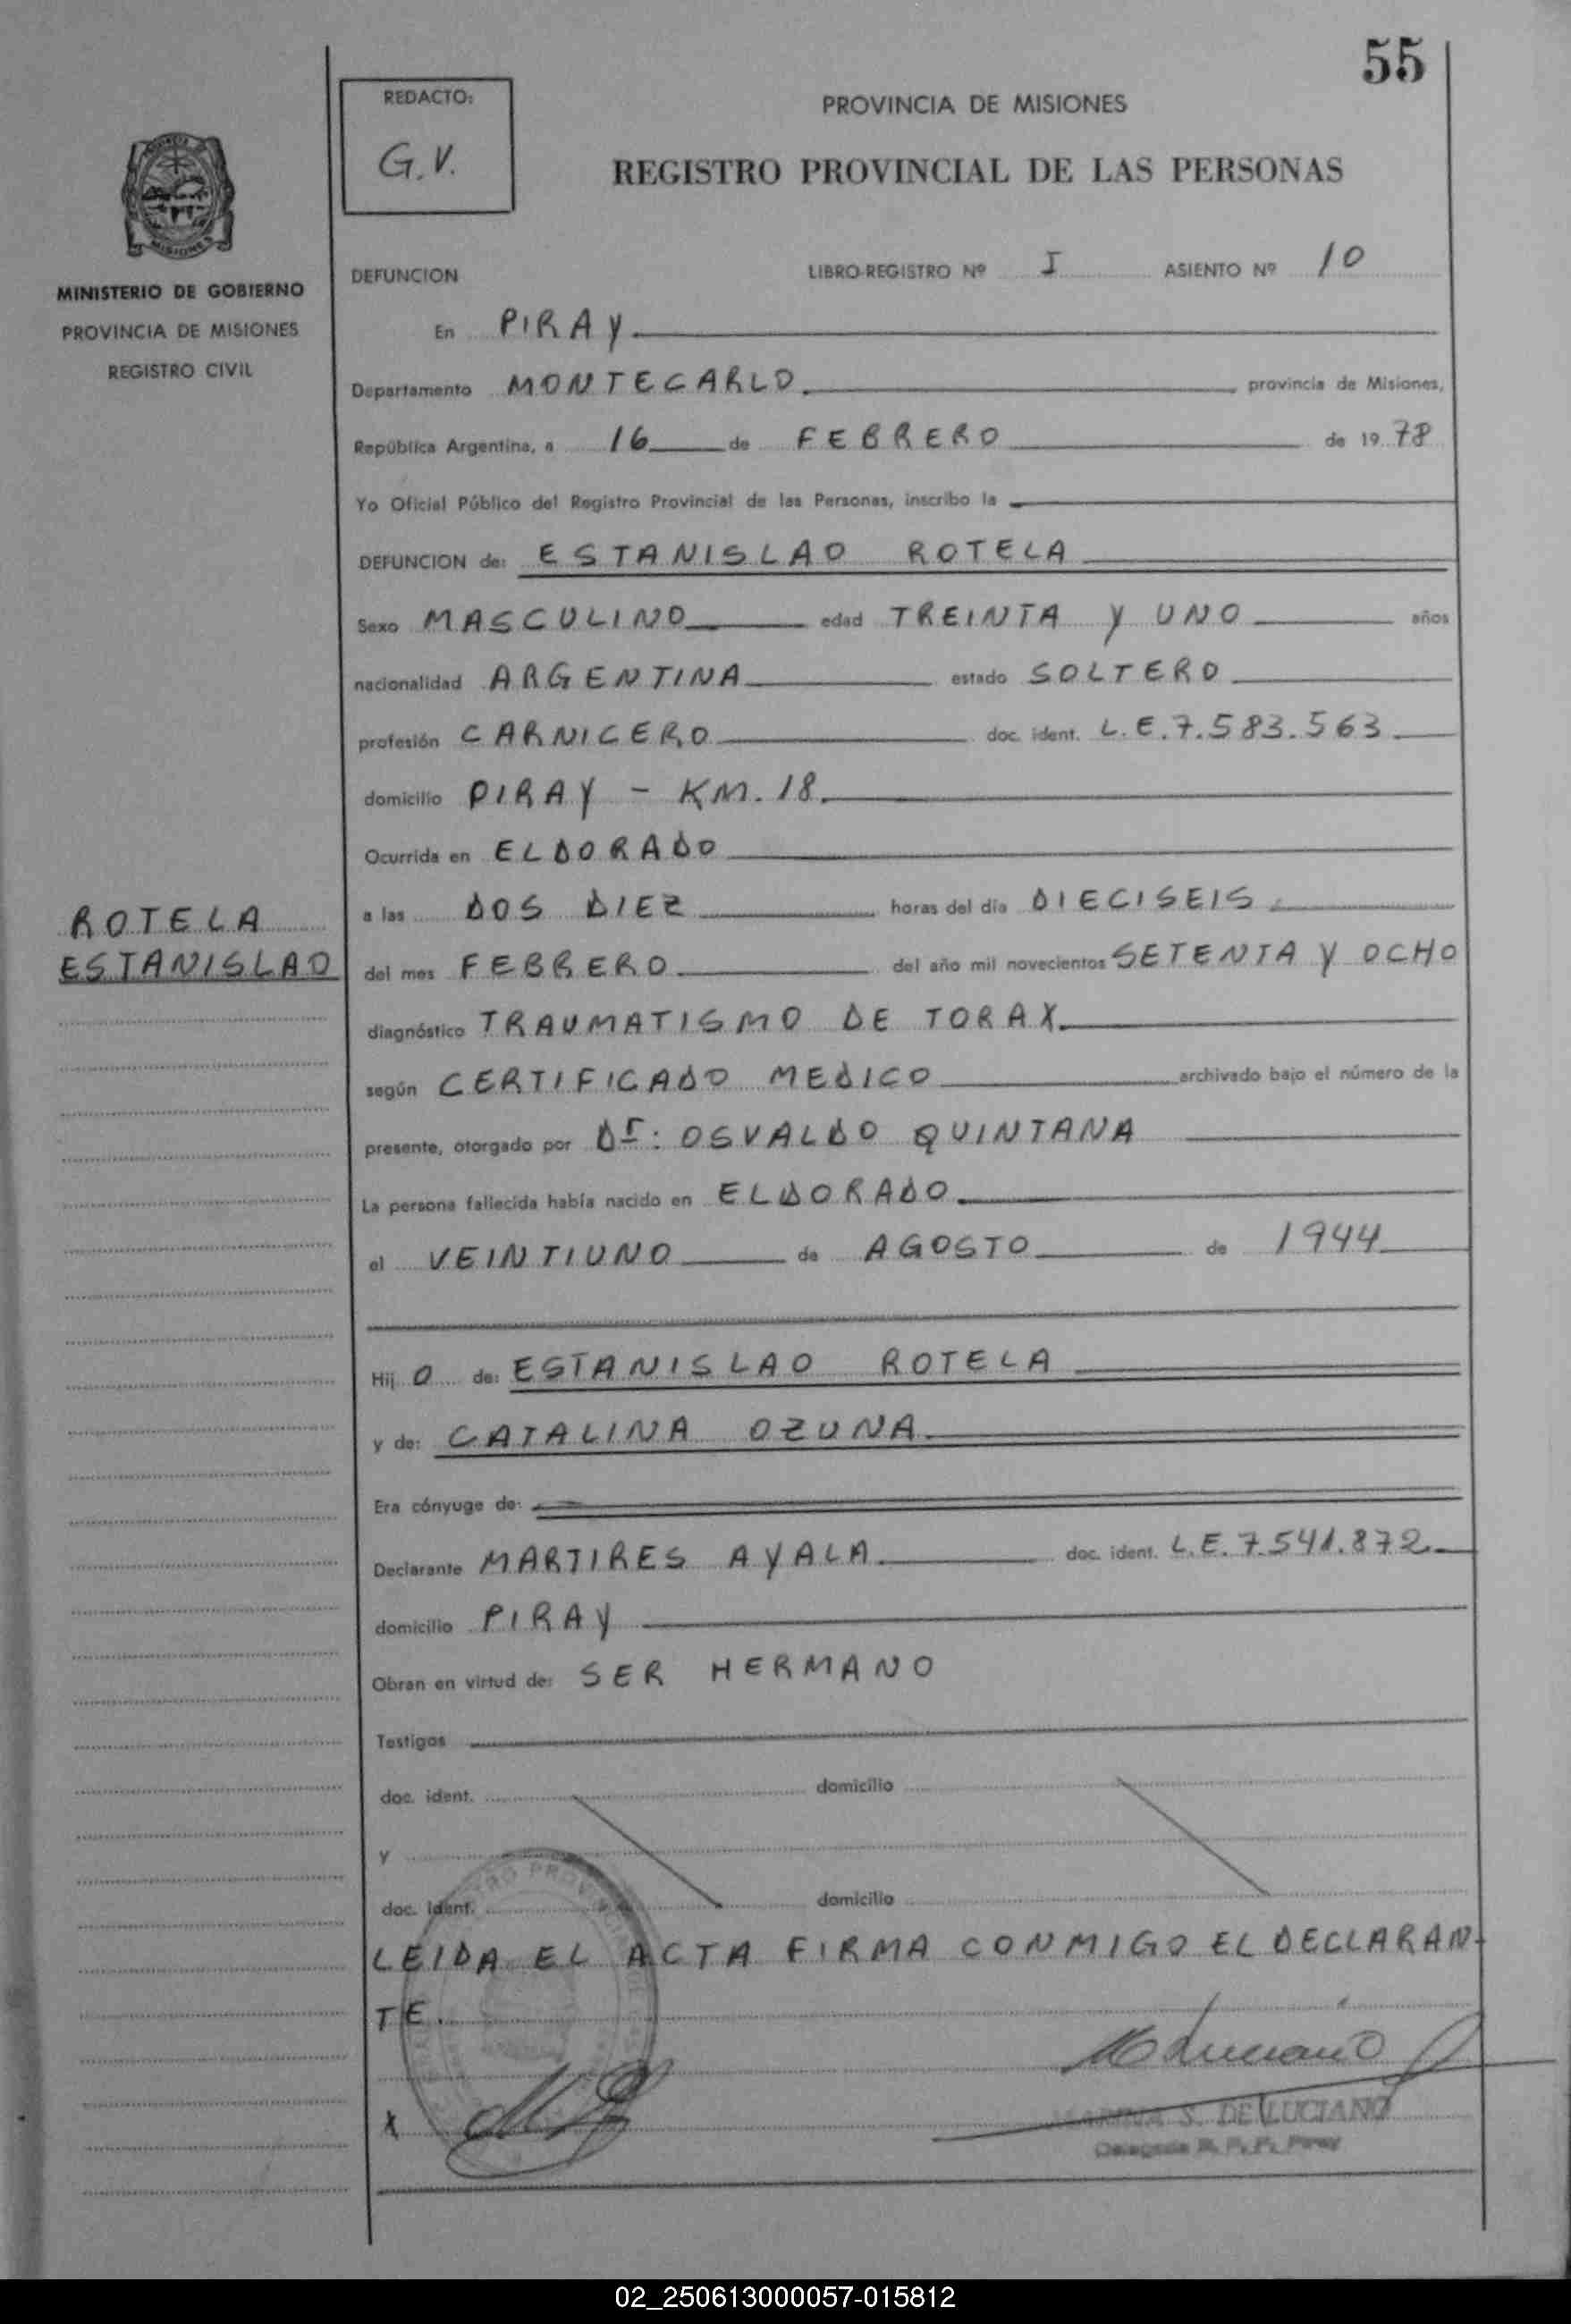 55
REDACTO:
G.V.
PROVINCIA DE MISIONES
REGISTRO PROVINCIAL DE LAS PERSONAS
MISIONES
MINISTERIO DE GOBIERNO
PROVINCIA DE MISIONES
REGISTRO CIVIL
DEFUNCION LIBRO-REGISTRO Nº I ASIENTO Nº 10
En PIRAY
Departamento MONTECARLO provincia de Misiones,
República Argentina, a 16 de FEBRERO de 1978
Yo Oficial Público del Registro Provincial de las Personas, inscribo la
DEFUNCION de: ESTANISLAO ROTELA
Sexo MASCULINO edad TREINTA Y UNO años
nacionalidad ARGENTINA estado SOLTERO
profesión CARNICERO doc. ident. L.E.7.583.563
domicilio PIRAY - KM. 18.
Ocurrida en ELDORADO
a las DOS DIEZ horas del día DIECISEIS
ROTELA
ESTANISLAO
del mes FEBRERO del año mil novecientos SETENTA Y OCHO
diagnóstico TRAUMATISMO DE TORAX.
según CERTIFICADO MEDICO archivado bajo el número de la
presente, otorgado por Dr: OSVALDO QUINTANA
La persona fallecida había nacido en ELDORADO.
el VEINTIUNO de AGOSTO de 1944
Hij O de: ESTANISLAO ROTELA
y de: CATALINA OZUNA.
Era cónyuge de:
Declarante MARTIRES AYALA. doc. ident. L.E. 7.541.872.
domicilio PIRAY
Obran en virtud de: SER HERMANO
Testigos
doc. ident. domicilio
y
doc. ident. domicilio
LEIDA EL ACTA FIRMA CONMIGO EL DECLARAN-
TE.
M Luciano
X
MARINA S. DE LUCIANO
Delegada R. P. P. Piray
02_250613000057-015812